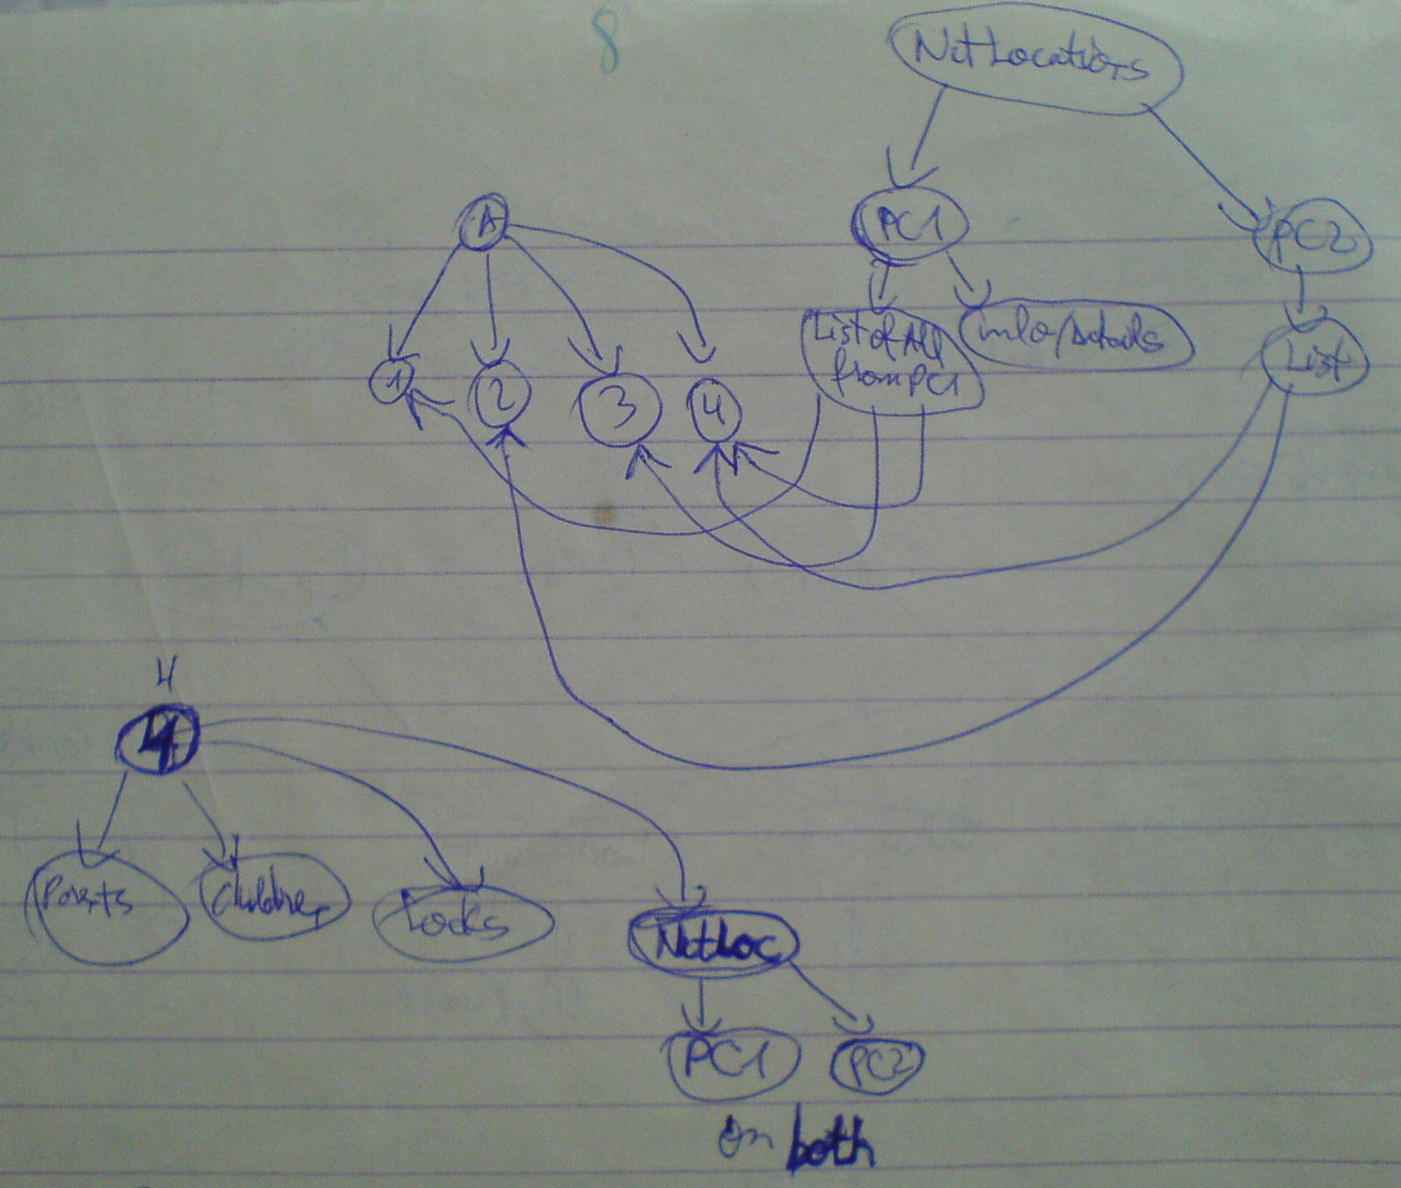 8
NetLocations
A
PC1
PC2
1
2
3
4
List of All
from PC1
info/Details
List
4
4
Parents
Children
Locks
NetLoc
PC1
PC2
on both